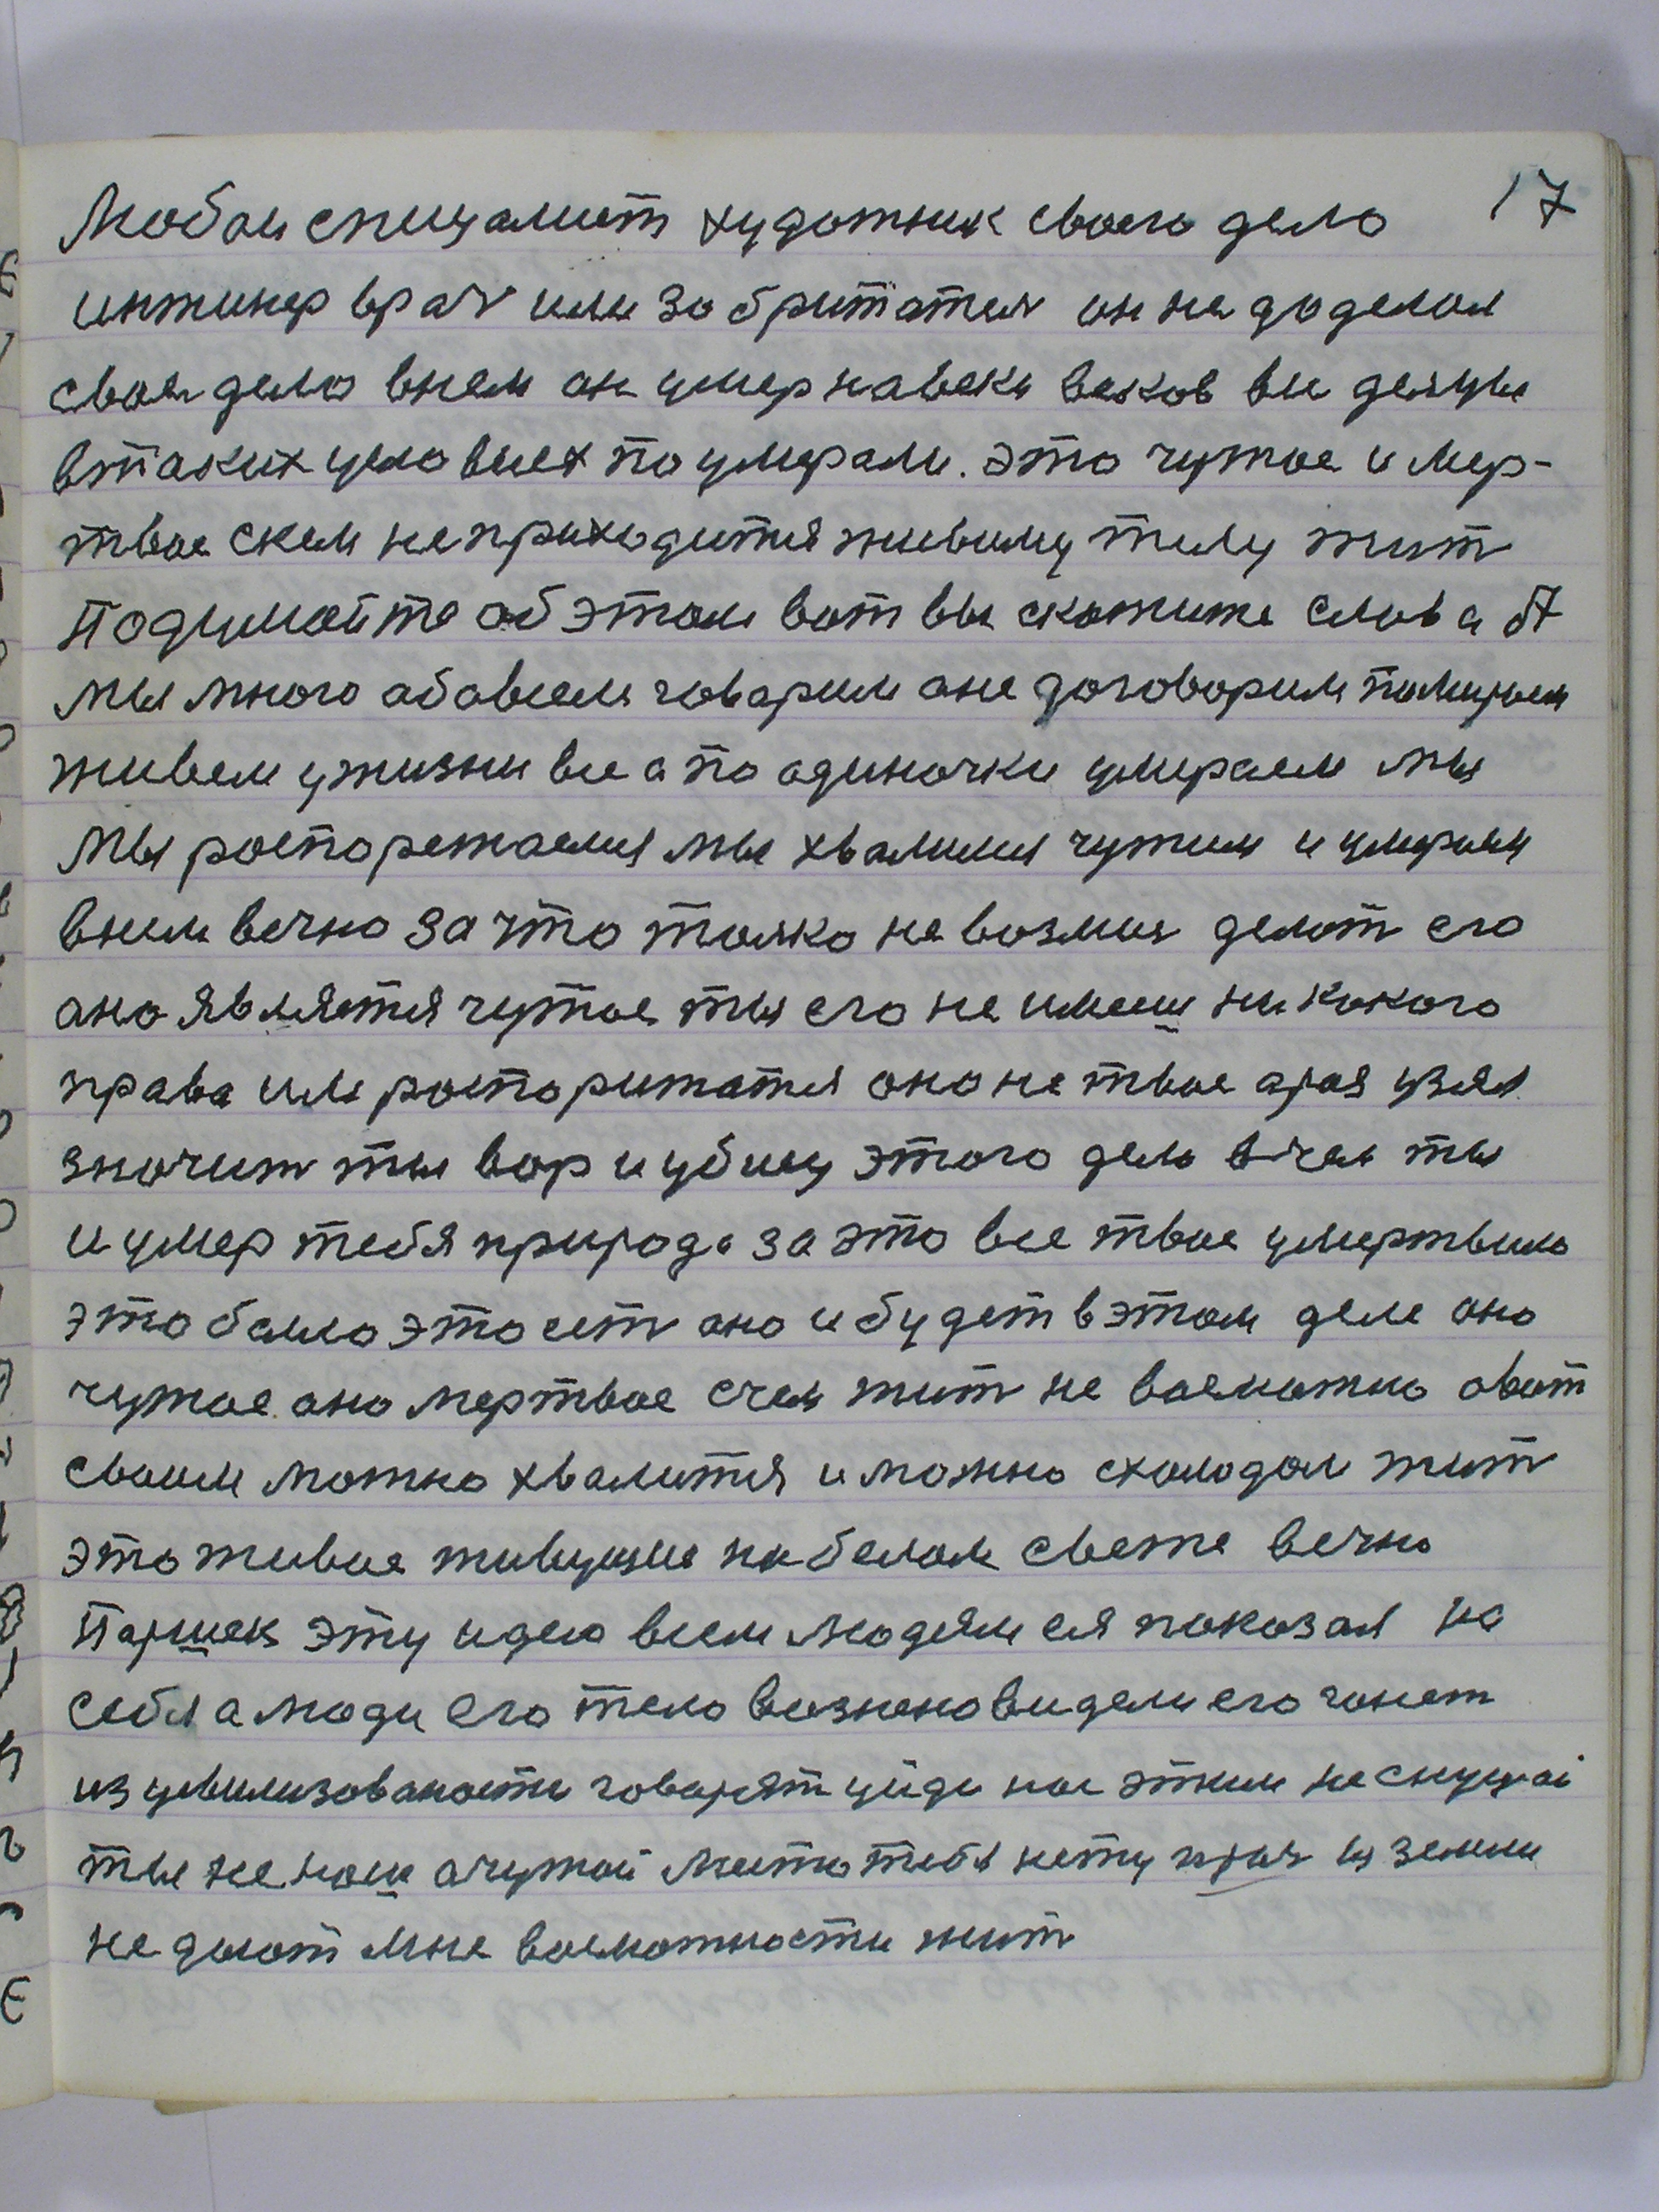 17
Любои спицалист художник своего дело
инжинер врач или зобритатель он не доделал
своя дело внем он умер навеки веков вы деяцы
втаких условиех поумерали. это чужое и мер-
твое скем не приходится живому телу жит
Подумайте об этом вот вы скажите слова
мы много абовсем говарим ане договорим
живем ужизни все а по одиночки умераем мы
мы роспорежаемся мы хвалимся чужим и умираем
внем вечно за что толко не возмися делат его
ано является чужое ты его не имееш никокого
права им роспорижатся оно не твое араз узял
значит ты вор и убиец этого дела вчем ты
и умер тебя природа за это все твое умертвила
это было это ест ано и будет вэтом деле оно
чужое ано мертвое счем жит не восможно овот
своим можно хвалится и можно схолодом жит
это живое живущие на белом свете вечно
Паршек эту идею всем людям ея показал на
себя а люди его тело возненовидели его гонют
из цивилизованости говарят уйди нас этим не смущаи
ты не наш ачужой места тебя нету прач из земли
не дают мне восможности жит